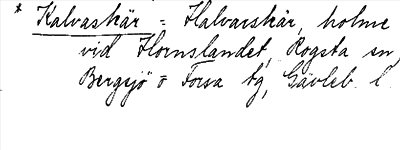 * Kalvaskär = Halvarskär, holme
vid Hornslandet, Rogsta sn,
Bergsjö o Forsa tg, Gävleb. l.